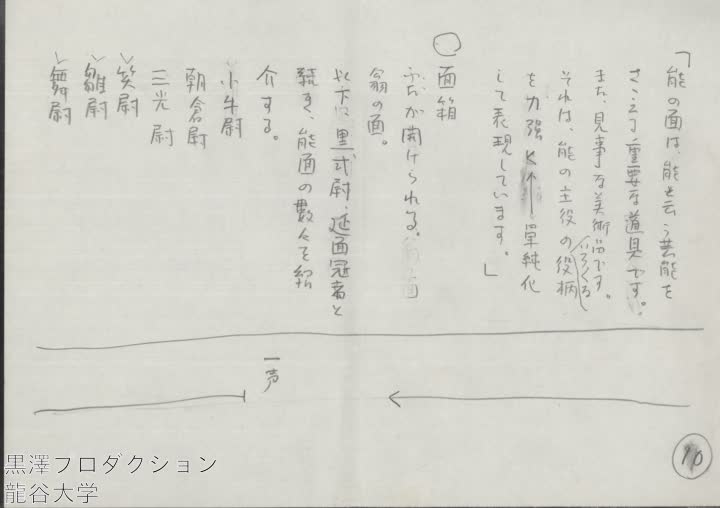 「能の面は、能と云う芸能を
ささえる重要な道具です。
また、見事な美術品です。
それは、能の主役の役柄
を力強く単純化
して表現しています。」
○面箱
ふたが開けられる。
翁の面。
以下に黒式尉、延面冠者と
続き、能面の数々を紹
介する。
小牛尉
朝倉尉
三光尉
笑尉
雛尉
舞尉
一声
10
黒澤プロダクション
龍谷大学